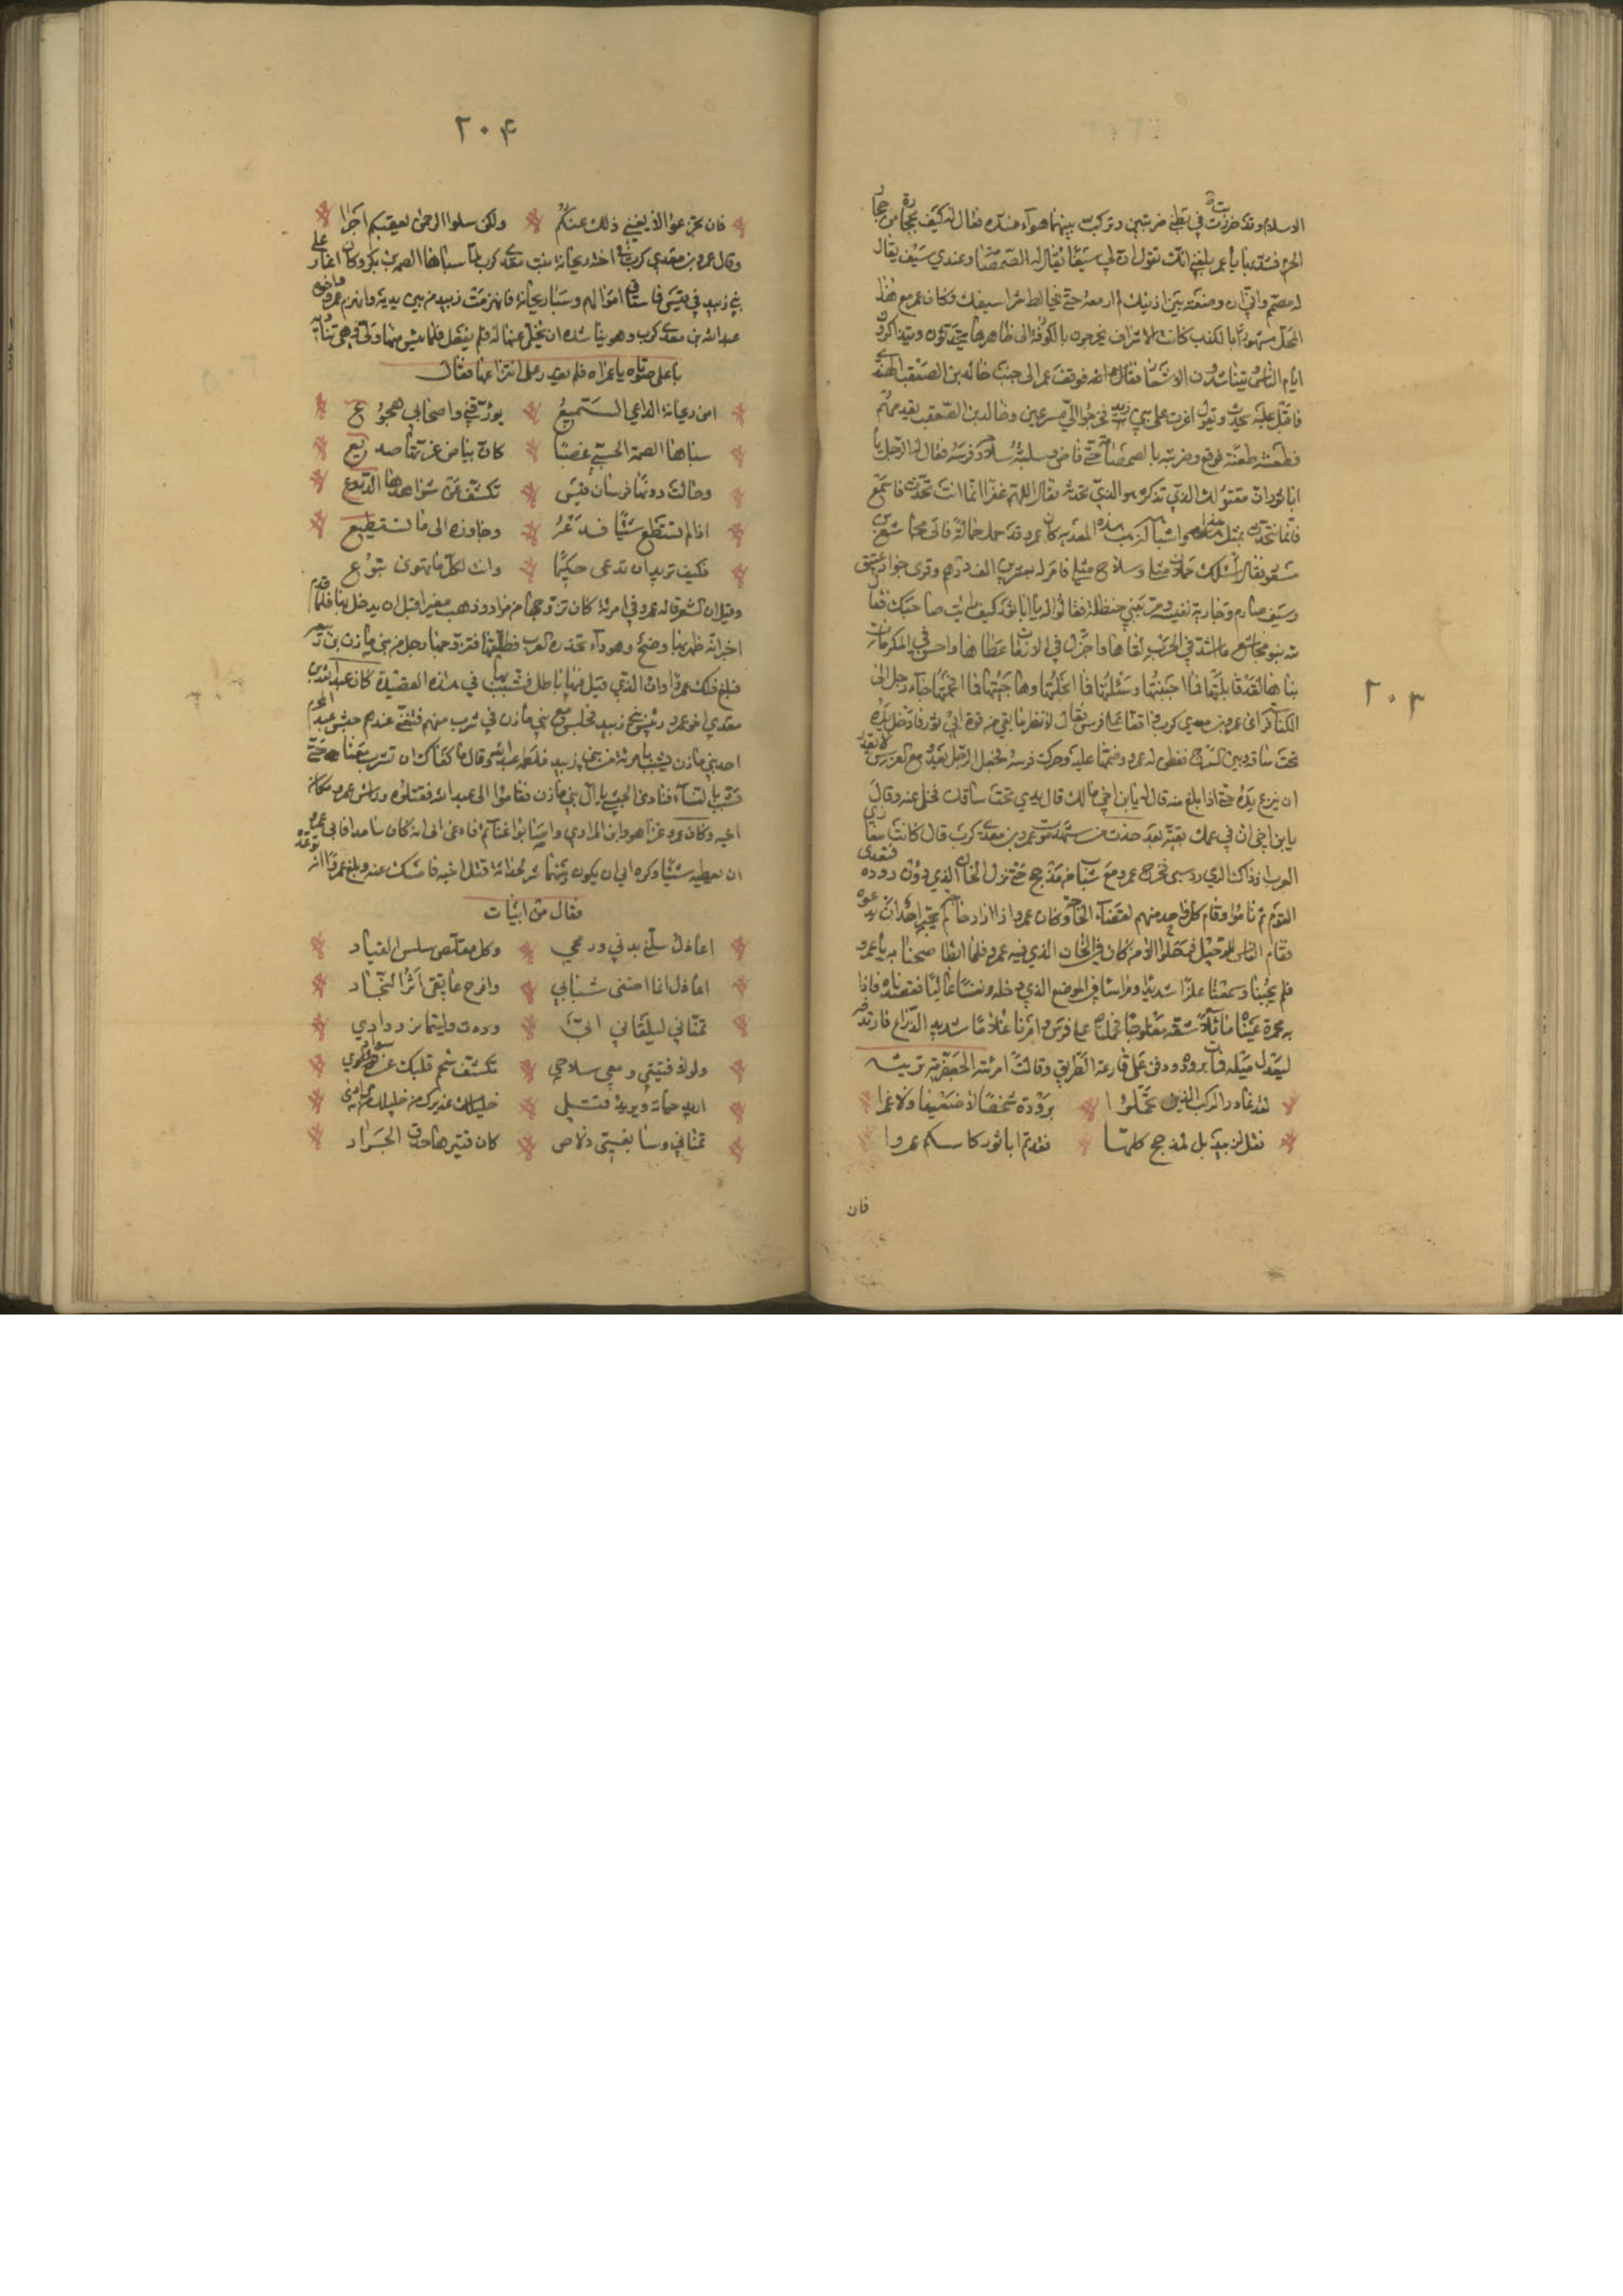 ٢٠٣
الاسلام وقد ضربت في بطني ضربتين وتركت بينهما هوآء منه فقال له كيف
الحرم فشد يا عمر بلغني انك تقول ان لي سيفا يقال له الصمصام وعندي سيف يقال
له مصمم واني ان وضعته بين اذنيك لم ارفعه حتى يخالط سيفك وكان عمرو مع هذا
المحل مشهورا بالكذب كانت الاشراف يخرجون بالكوفة الى ظاهرها يتحدثون ويتذاكرون
ايام الناس ويتناشدون الاشعار فوقف عمرو الى جنب خالد بن الصقعب النهدي
فاقبل عليه يحدثه ويقول اغرت على بني نهد فخرجوا الي مسرعين وخالد بن الصقعب يقدمهم
فطعنته طعنة فوقع وضربته بالصمصام حتى فاض وسلبته سلاحه وفرسه فقال له الرجل يا
ابا ثور ان مقتولك الذي تذكره هو الذي تحدثه فقال اللهم غفرا انما انت تحدث فاسمع
فانما نتحدث بمثل هذا واشباهه لنرهب هذه المعدية كان عمرو قد حمل حمالة فاتى مجاشع بن
مسعود فقال اسئلك حملان مثلي وسلاح مثلي فامر له بعشرين الف درهم وفرس جواد عتيق
وسيف صارم وجارية نفيسة ومر ببني حنظلة فقالوا له يا ابا ثور كيف رايت صاحبك فقال
لله بنو مجاشع ما اشد في الحرب لقاها واجزل في اللزبات عطاها واحسن في المكرمات
بناها لقد قابلتها فما اجبنتها وسئلتها فما ابخلتها وهاجيتها فما افحمتها جاء رجل الى
الكناسة فراى عمرو بن معدي كرب واقفا على فرس فقال لانظر ما بقي من قوة ابي ثور فادخل يده
تحت ساقه وبين السرج ففطن له عمرو وضمها عليه وحرك فرسه فجعل الرجل يعدو مع الفرس لا يقدر
ان ينزع يده حتى اذا بلغ منه قال له يابن اخي مالك قال يدي تحت ساقك فخلى عنه وقال
يابن اخي ان في عمك بقية بعد حدثت من شهد موت عمرو بن معدي كرب قال كانت مغازي
العرب اذ ذاك الري ودستبى فخرج عمرو مع شباب من مذحج حتى نزل الخان الذي دون روده فتغدى
القوم ثم ناموا وقام كل واحد منهم لقضاء الحاجة وكان عمرو اذا اراد حاجة لم يجتر احد ان يدعوه
فقام الناس للرحيل فترحلوا الا من كان في الخان الذي فيه عمرو فلما ابطا صحنا به يا عمرو
فلم يجبنا وسمعنا علزا شديدا ومراسا في الموضع الذي دخله ونفسا عاليا فقصدناه فاذا
به محمرة عيناه مائلا شدقه مفلوجا فحملناه على فرس وامرنا غلاما شديد الذراع فارتدفه
ليعدل ميله فمات بروده ودفن على قارعة الطريق وقالت امرئته الجعفية ترثيه
لقد غادر الركب الذين تحملوا بروذة شخصا لا ضعيفا ولا غمرا
فقل لزبيد بل لمذحج كلها فقدتم ابا ثور كاسكم عمروا
فان
٢٠۴
فان تجزعوا لا يغني ذلك عنكم ولكن سلوا الرحمن يعقبكم اجرا
وقال عمرو بن معدي كرب في اخته ريحانة بنت معدي كرب لما سباها الصمة بن بكر وكان اغار على
بني زبيد في قيس فاستاق اموالهم وسبا ريحانة فانهزمت زبيد من بين يديه وانهزم عمرو واخوه
عبد الله بن معدي كرب وهو يناشده ان يخلى عنها له فلم يفعل فلما يئس منها ولى وهي تناديه
باعلى صوتها يا عمراه فلم يقدر على انتزاعها فقال
امن ريحانة الداعي السميع يورقني واصحابي هجوع
سباها الصمة الجشمي غصبا كان بياض غرتها صديع
وحالت دونها فرسان قيس تكشف عن سواعدها الدروع
اذا لم تستطع شيئا فدعه وجاوزه الى ما تستطيع
فكيف تريد ان تدعى حكيما وانت لكل ما تهوى تبوع
وقيل ان الشعر قاله عمرو في امرئة كان تزوجها من مراد وذهب مغيرا قبل ان يدخل بها فلما قدم
اخبر انه ظهر بها وضح وهو داء تحذره العرب فطلقها فتزوجها رجل من بني مازن بن ربيعة
فبلغ ذلك عمروا وان الذي قيل فيها باطل فشبب بها في هذه القصيدة كان عبد الله بن
معدي اخو عمرو رئيس بني زبيد فجلس مع بني مازن في شرب منهم فتغنى عندهم حبشي عبد المخزم
احد بني مازن يشبب بامرئة من بني زبيد فلطمه عبد الله وقال ما كفاك ان تشرب معنا حتى
تشبب بالنساء فنادى الحبشي يا ال بني مازن فقاموا الى عبد الله فقتلوه ورئس عمرو مكان
اخيه وكان عمرو غزا هو وابن المرادي واصابوا غنائم فادعى ابي انه كان ساندا فابى عمرو
ان يعطيه شيئا وكره ابي ان يكون بينهما شر لحداثة قتل اخيه فامسك عنه وبلغ عمروا انه توعده
فقال من ابيات
اعاذل سلتي بدني ورمحي وكل مقلص سلس القياد
اعاذل انما افنى شبابي واقرح عاتقي اثر النجاد
تمناني ليلقاني ابي وددت واينما من ودادي
ولو لاقيتني ومعي سلاحي تكشف شحم قلبك عن سواد
اريد حياته ويريد قتلي خليلك عذيرك من خليلك من مراد
تمناني وسابغتي دلاص كان قتيرها حدق الجراد